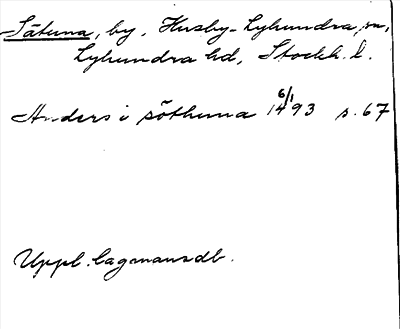 Sätuna, by, Husby-Lyhundra sn,
Lyhundra hd, Stockh. l.
Anders i söthuna 6/1 1493 s. 67
Uppl. lagmansdb.